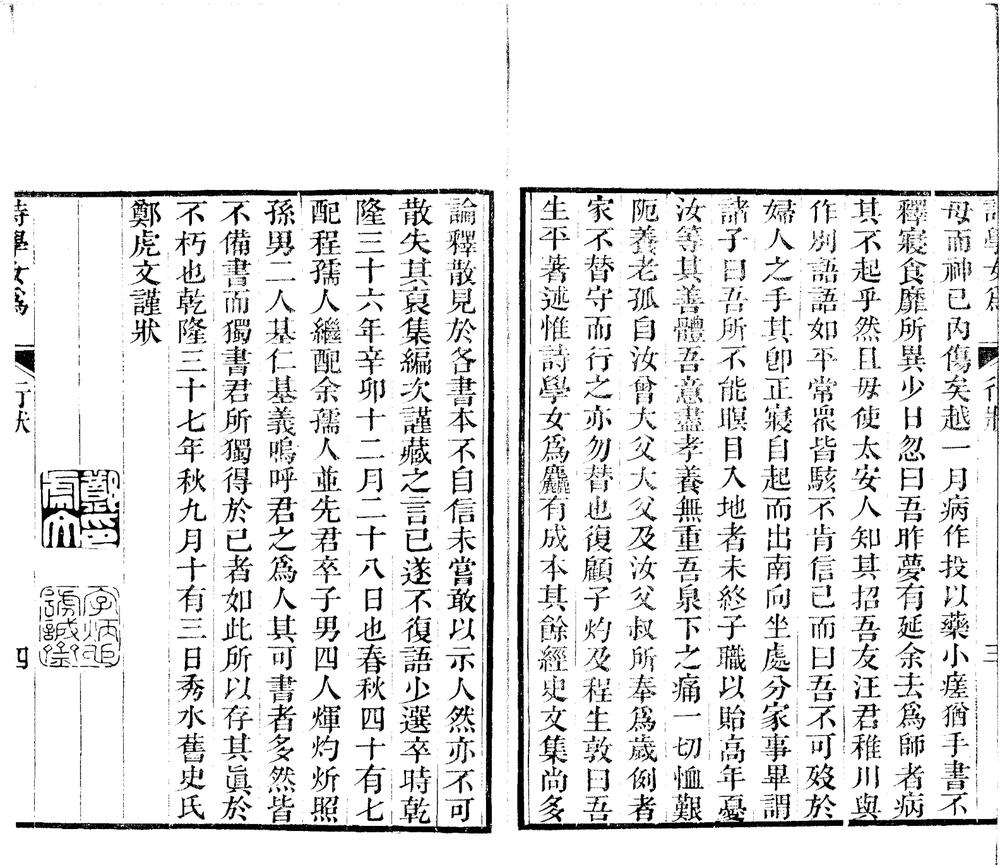 毋而神已內傷矣越一月病作投以藥小瘥猶手書不
釋寢食靡所異少日忽曰吾昨夢有延余去為師者病
其不起乎然且毋使太安人知其招吾友汪君稚川與
作別語語如平常衆皆駭不肯信已而曰吾不可歿於
婦人之手其卽正寢自起而出南向坐處分家事畢謂
諸子曰吾所不能瞑目入地者未終子職以貽高年憂
汝等其善體吾意盡孝養無重吾泉下之痛一切恤艱
阨養老孤自汝曾大父大父及汝父叔所奉為歲例者
家不替守而行之亦勿替也復顧子灼及程生敦曰吾
生平著述惟詩學女為麤有成本其餘經史文集尚多
三
論釋散見於各書本不自信未嘗敢以示人然亦不可
散失其裒集編次謹藏之言已遂不復語少選卒時乾
隆三十六年辛卯十二月二十八日也春秋四十有七
配程孺人繼配余孺人並先君卒子男四人煇灼炘照
孫男二人基仁基義嗚呼君之為人其可書者多然皆
不備書而獨書君所獨得於己者如此所以存其眞於
不朽也乾隆三十七年秋九月十有三日秀水舊史氏
鄭虎文謹狀
詩學女為
行狀
四